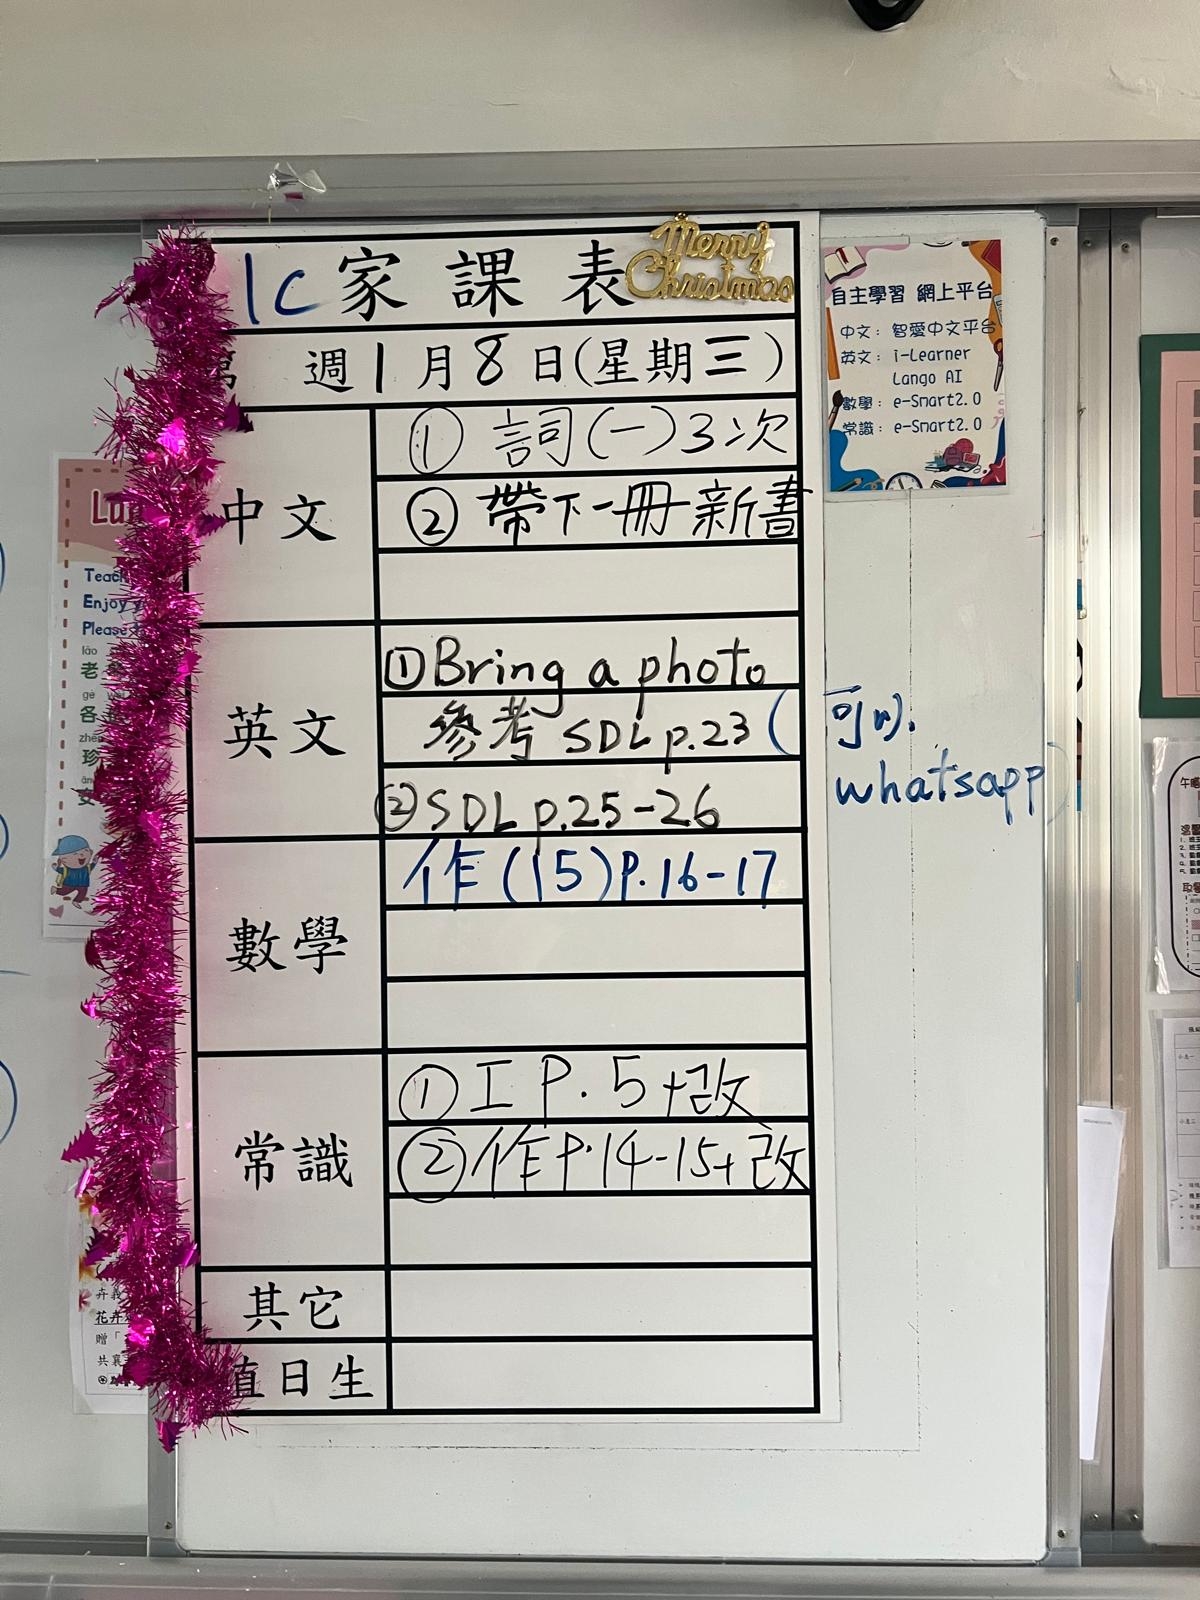 1C 家課表
Merry
Christmas
週 1 月 8 日(星期三)
中文
① 詞(一)3次
② 帶下一冊新書
英文
①Bring a photo
參考 SDL p.23 (可以.
whatsapp)
②SDL p.25-26
數學
作(15)P.16-17
常識
① I P.5+改
② 作P.14-15+改
其它
值日生
自主學習 網上平台
中文: 智愛中文平台
英文: i-Learner
Lango AI
數學: e-Smart2.0
常識: e-Smart2.0
Enjoy
Please
lǎo
老
gè
各
zhēn
珍
安
花卉
贈「
共襄